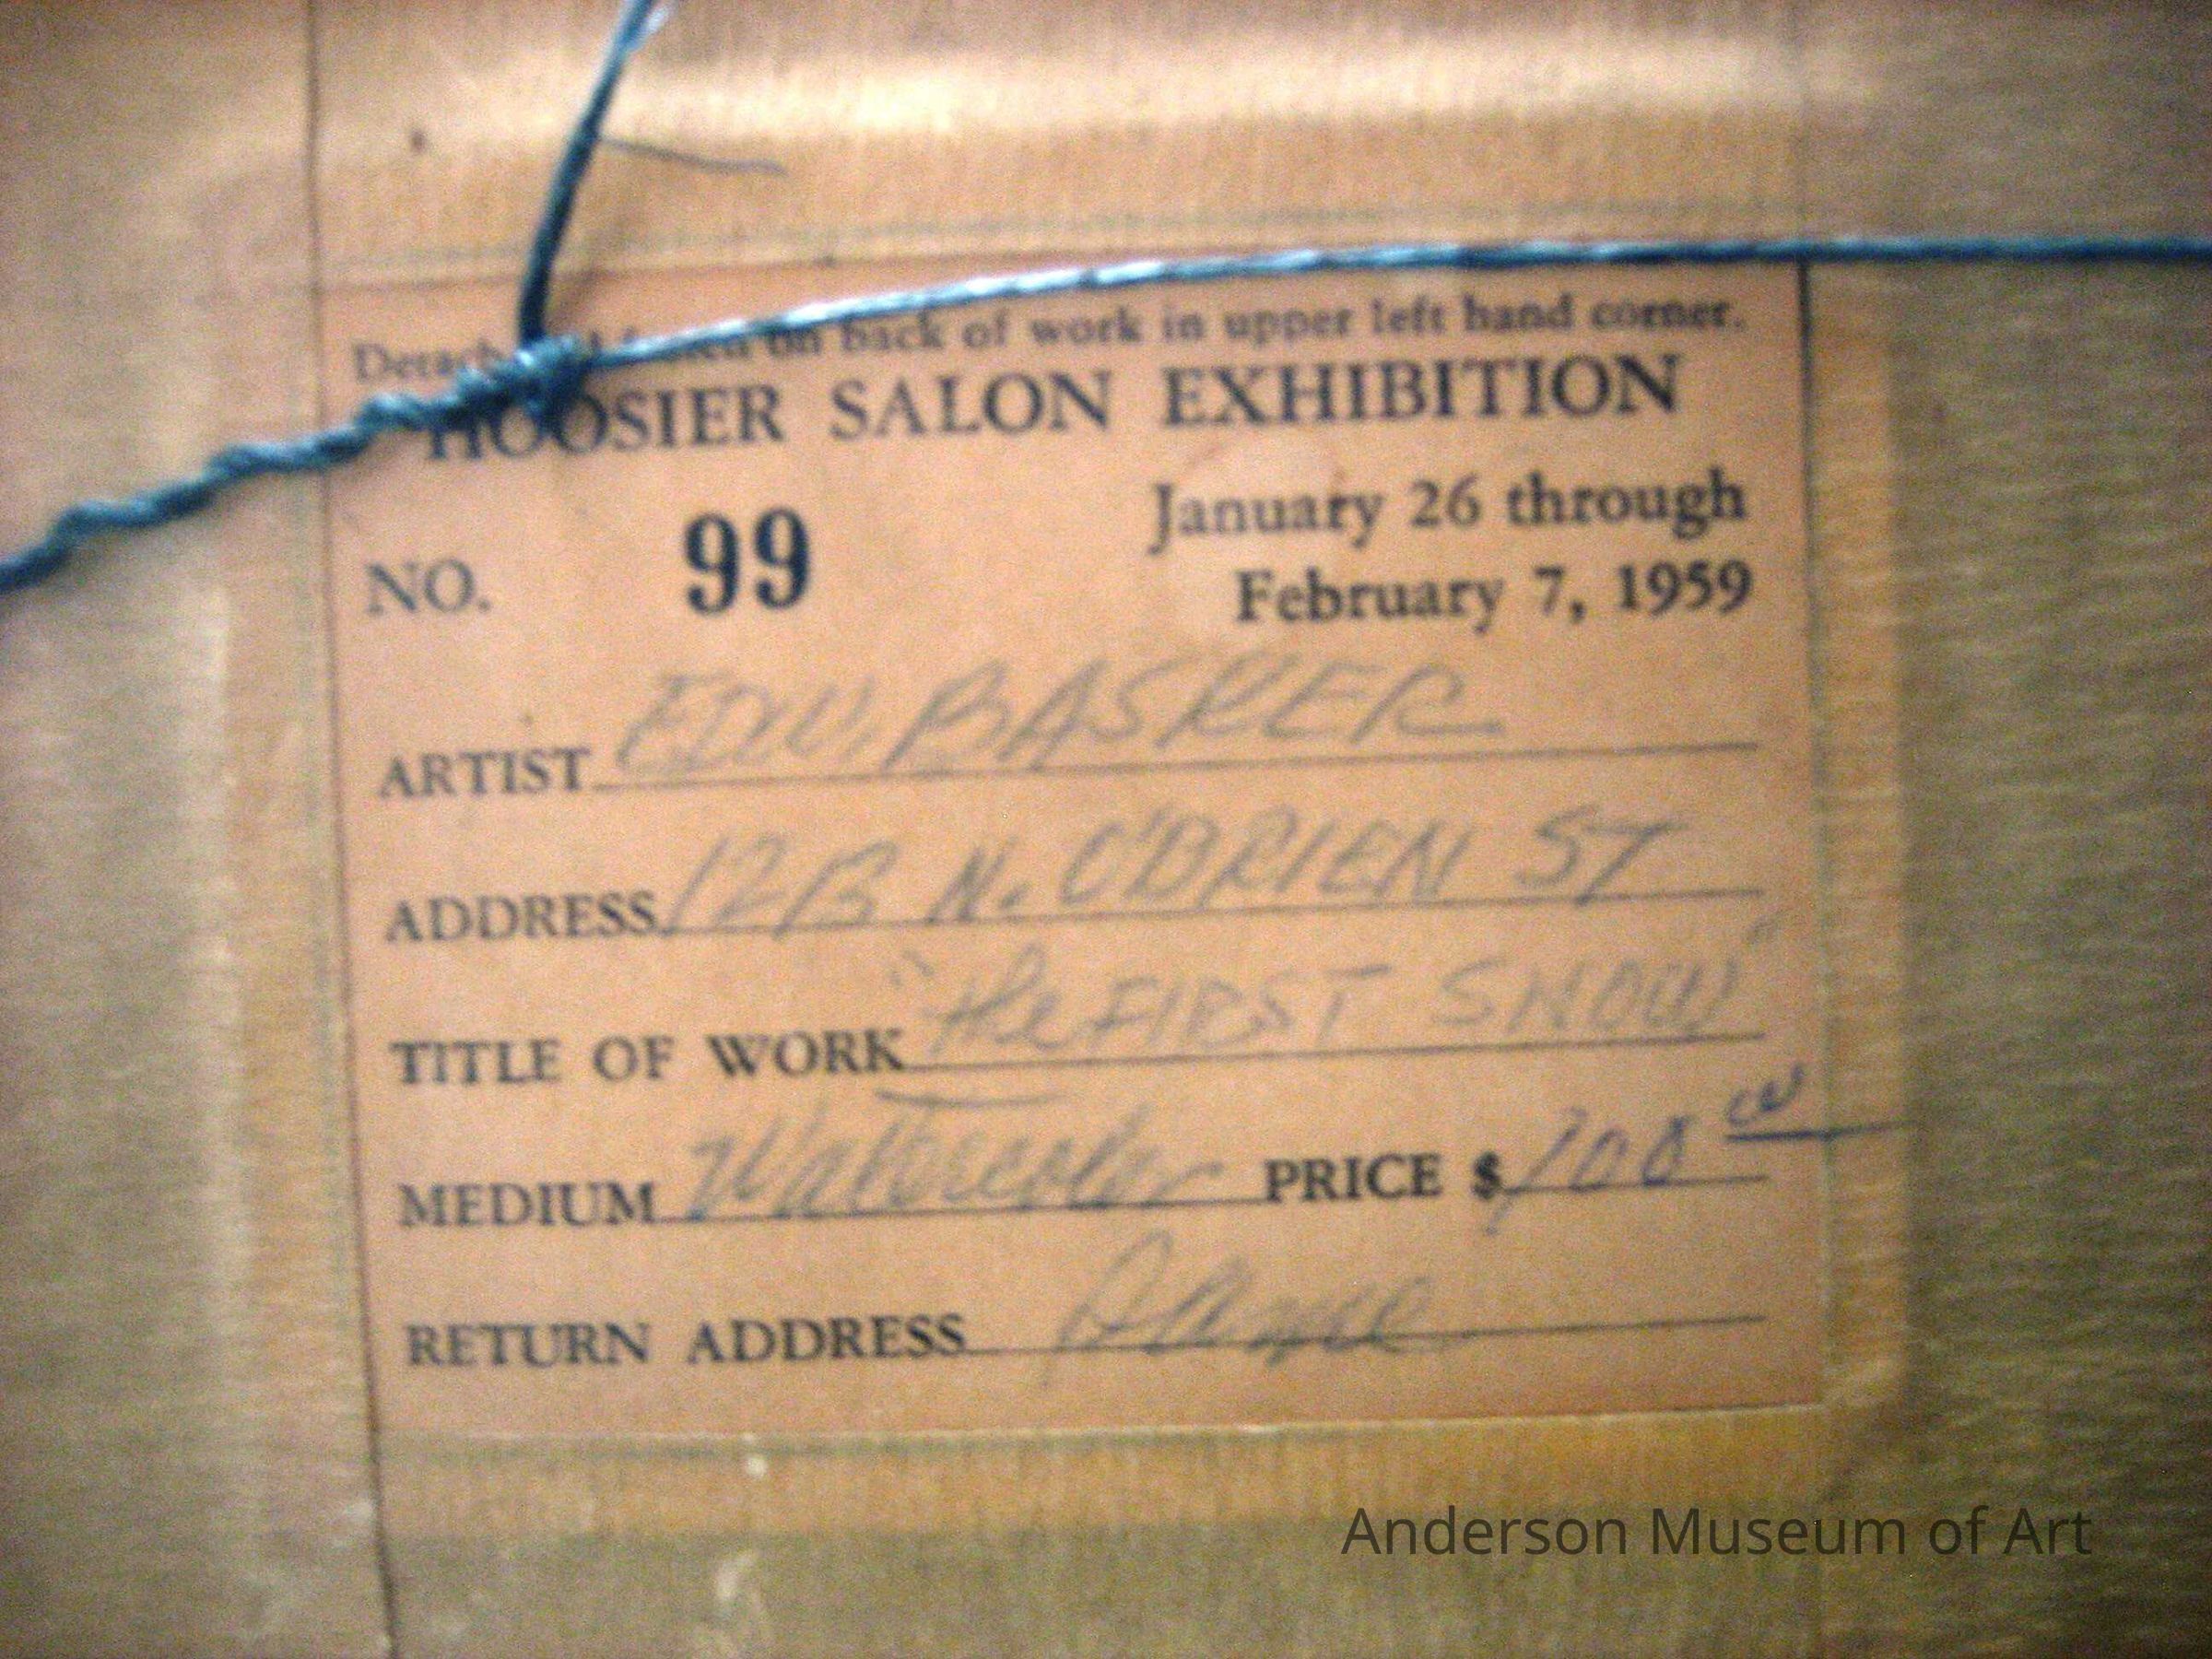 Detach on back of work in upper left hand corner.
HOOSIER SALON EXHIBITION
NO. 99 January 26 through
February 7, 1959
ARTIST EDW. BASKER
ADDRESS 12B N. O'BRIEN ST
TITLE OF WORK "the FIRST SNOW"
MEDIUM Watercolor PRICE $ 100
RETURN ADDRESS Same
Anderson Museum of Art